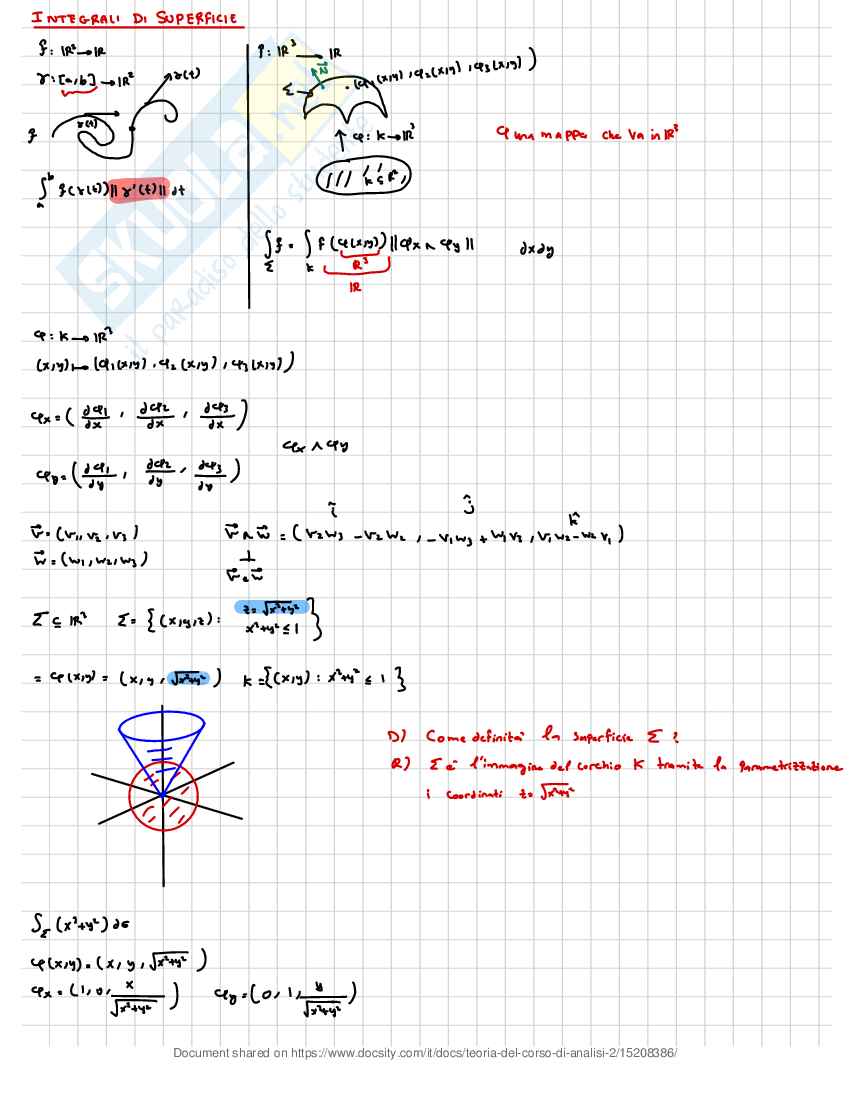 INTEGRALI DI SUPERFICIE
f: ℝ² → ℝ
γ: [a,b] → ℝ²
γ(t)
γ(t)
f
∫ₐᵇ f(γ(t)) ||γ'(t)|| dt
f: ℝ³ → ℝ
N
Σ (φ₁(x,y), φ₂(x,y), φ₃(x,y))
↑ φ: K → ℝ³
K ⊆ ℝ²
φ una mappa che va in ℝ³
∫_Σ f = ∫_K f(φ(x,y)) ||φx ∧ φy || dxdy
ℝ³
ℝ
φ: K → ℝ³
(x,y) ↦ (φ₁(x,y), φ₂(x,y), φ₃(x,y))
φx = (∂φ₁/∂x, ∂φ₂/∂x, ∂φ₃/∂x)
φx ∧ φy
φy = (∂φ₁/∂y, ∂φ₂/∂y, ∂φ₃/∂y)
î ĵ k̂
v = (v₁, v₂, v₃) v ∧ w = (v₂w₃ - v₂w₂, -v₁w₃ + w₁v₃, v₁w₂ - w₂v₁)
w = (w₁, w₂, w₃) ⊥
v e w
Σ ⊆ ℝ³ Σ = {(x,y,z): z = √x²+y² x²+y² ≤ 1}
= φ(x,y) = (x, y, √x²+y²) K = {(x,y): x²+y² ≤ 1}
D) Come definita la superficie Σ?
R) Σ è l'immagine del cerchio K tramite la parametrizzazione
i coordinati z = √x²+y²
∫_Σ (x²+y²) dσ
φ(x,y) = (x, y, √x²+y²)
φx = (1, 0, x/√x²+y²) φy = (0, 1, y/√x²+y²)
SKUOLA.net
il paradiso dello studente
Document shared on https://www.docsity.com/it/docs/teoria-del-corso-di-analisi-2/15208386/